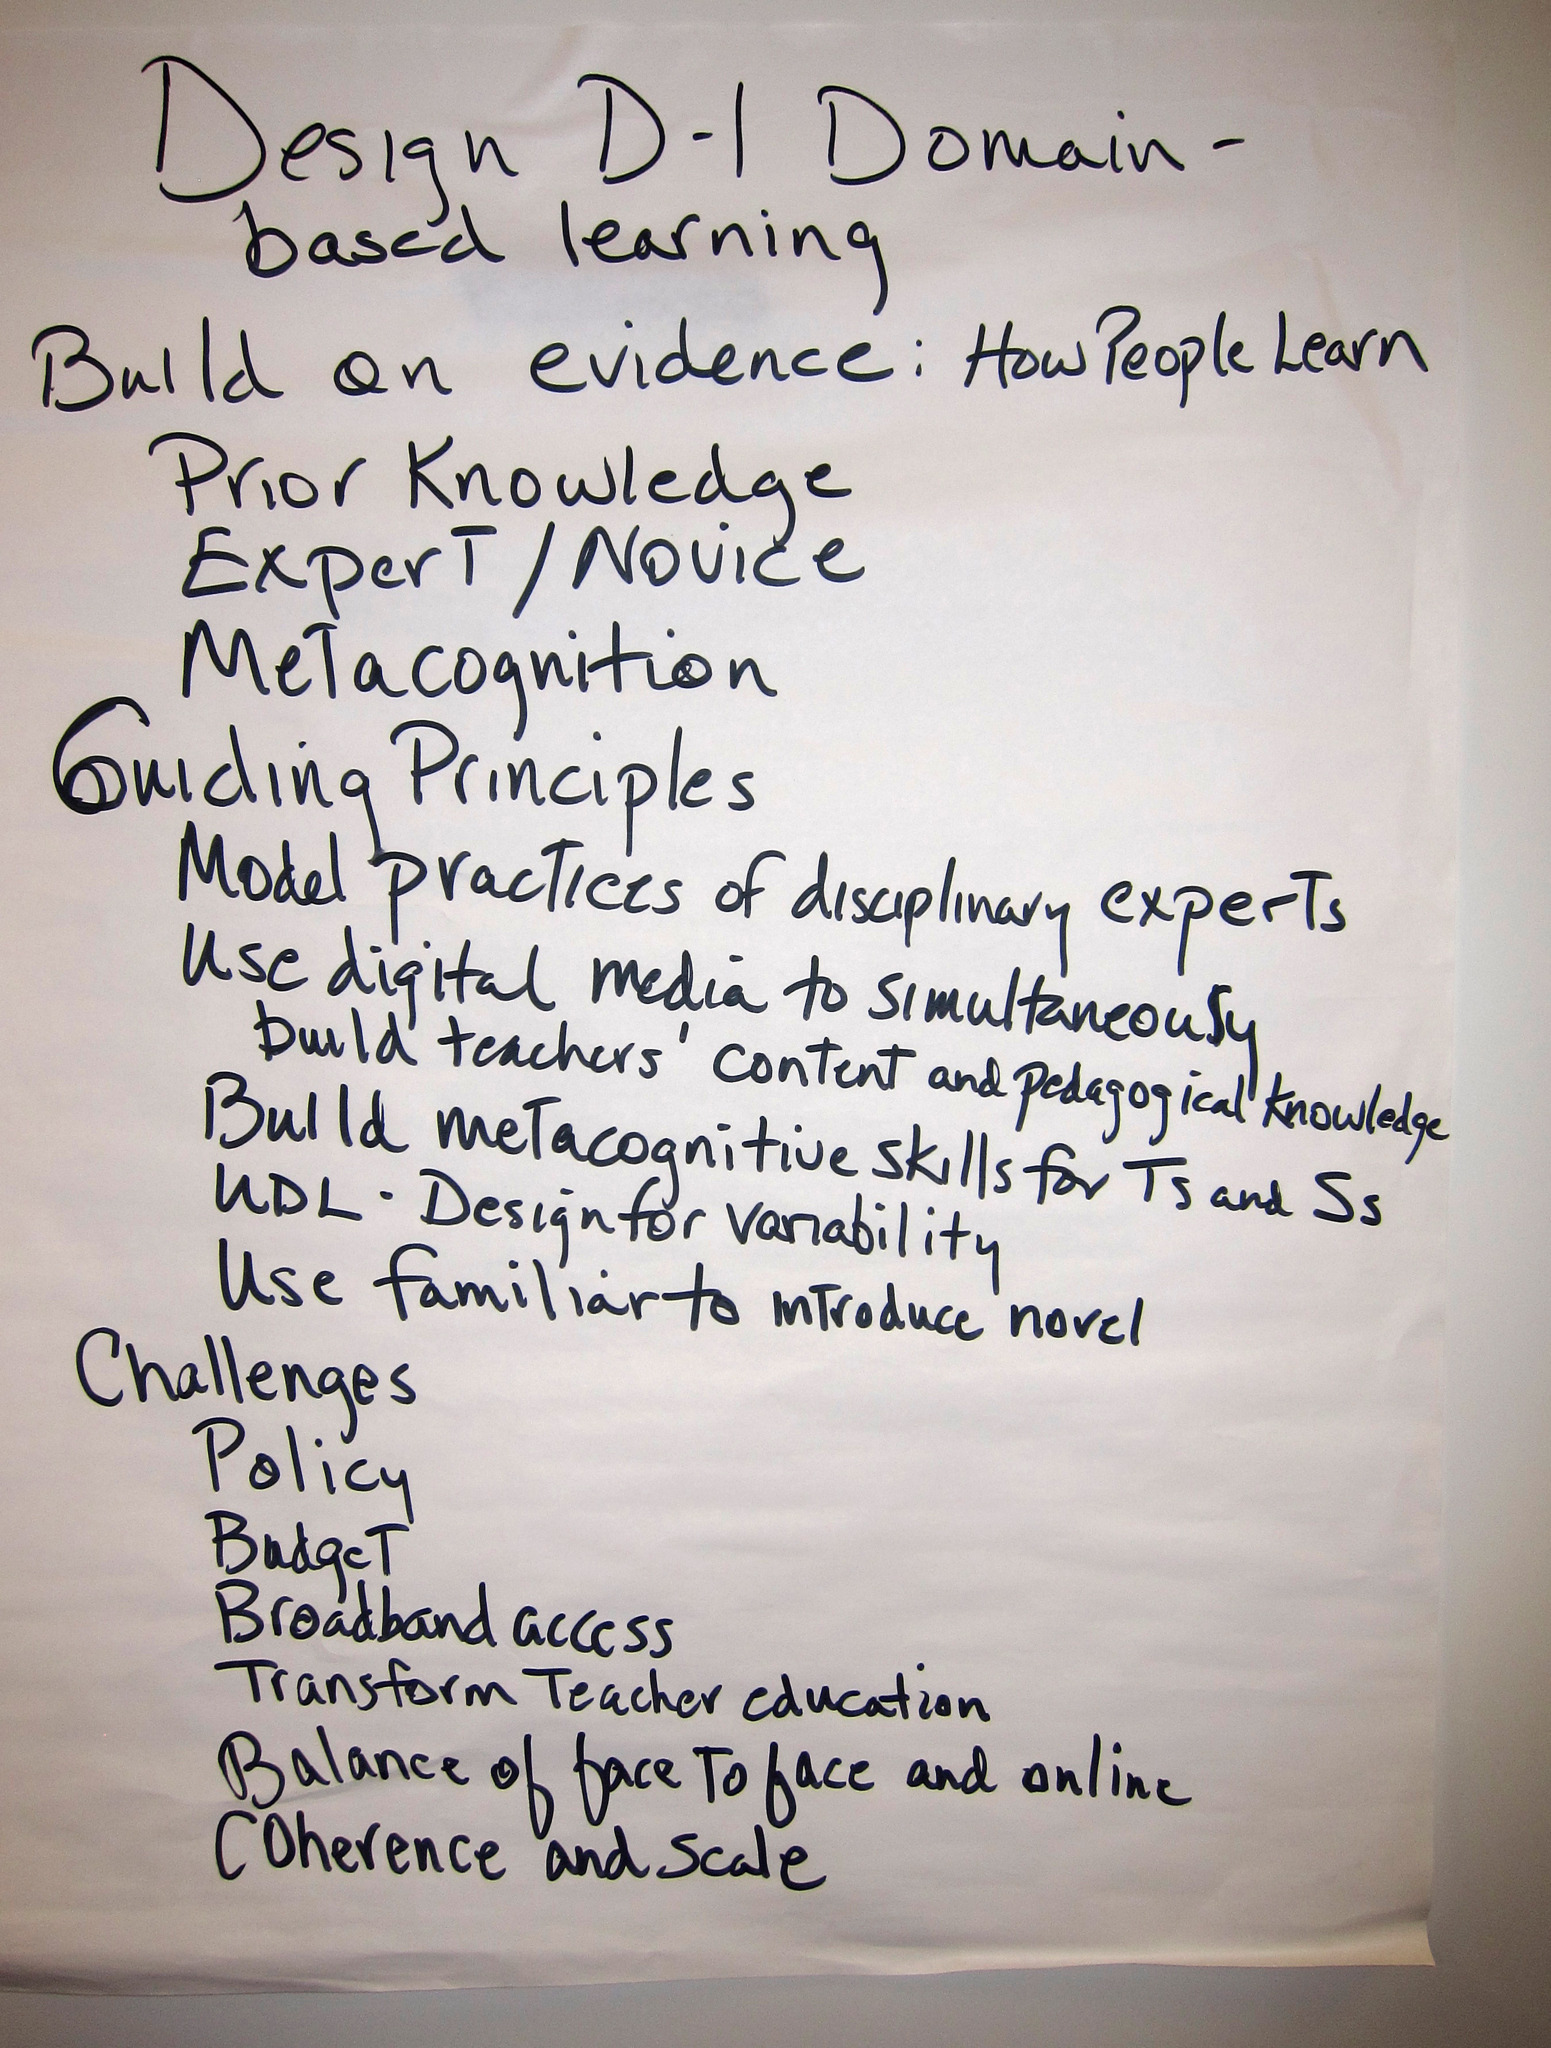 Design D-1 Domain-
based learning
Build on evidence: How People Learn
Prior Knowledge
Expert/Novice
Metacognition
Guiding Principles
Model practices of disciplinary experts
Use digital media to simultaneously
build teachers' content and pedagogical knowledge
Build metacognitive skills for Ts and Ss
UDL - Design for variability
Use familiar to introduce novel
Challenges
Policy
Budget
Broadband access
Transform Teacher education
Balance of face to face and online
Coherence and scale